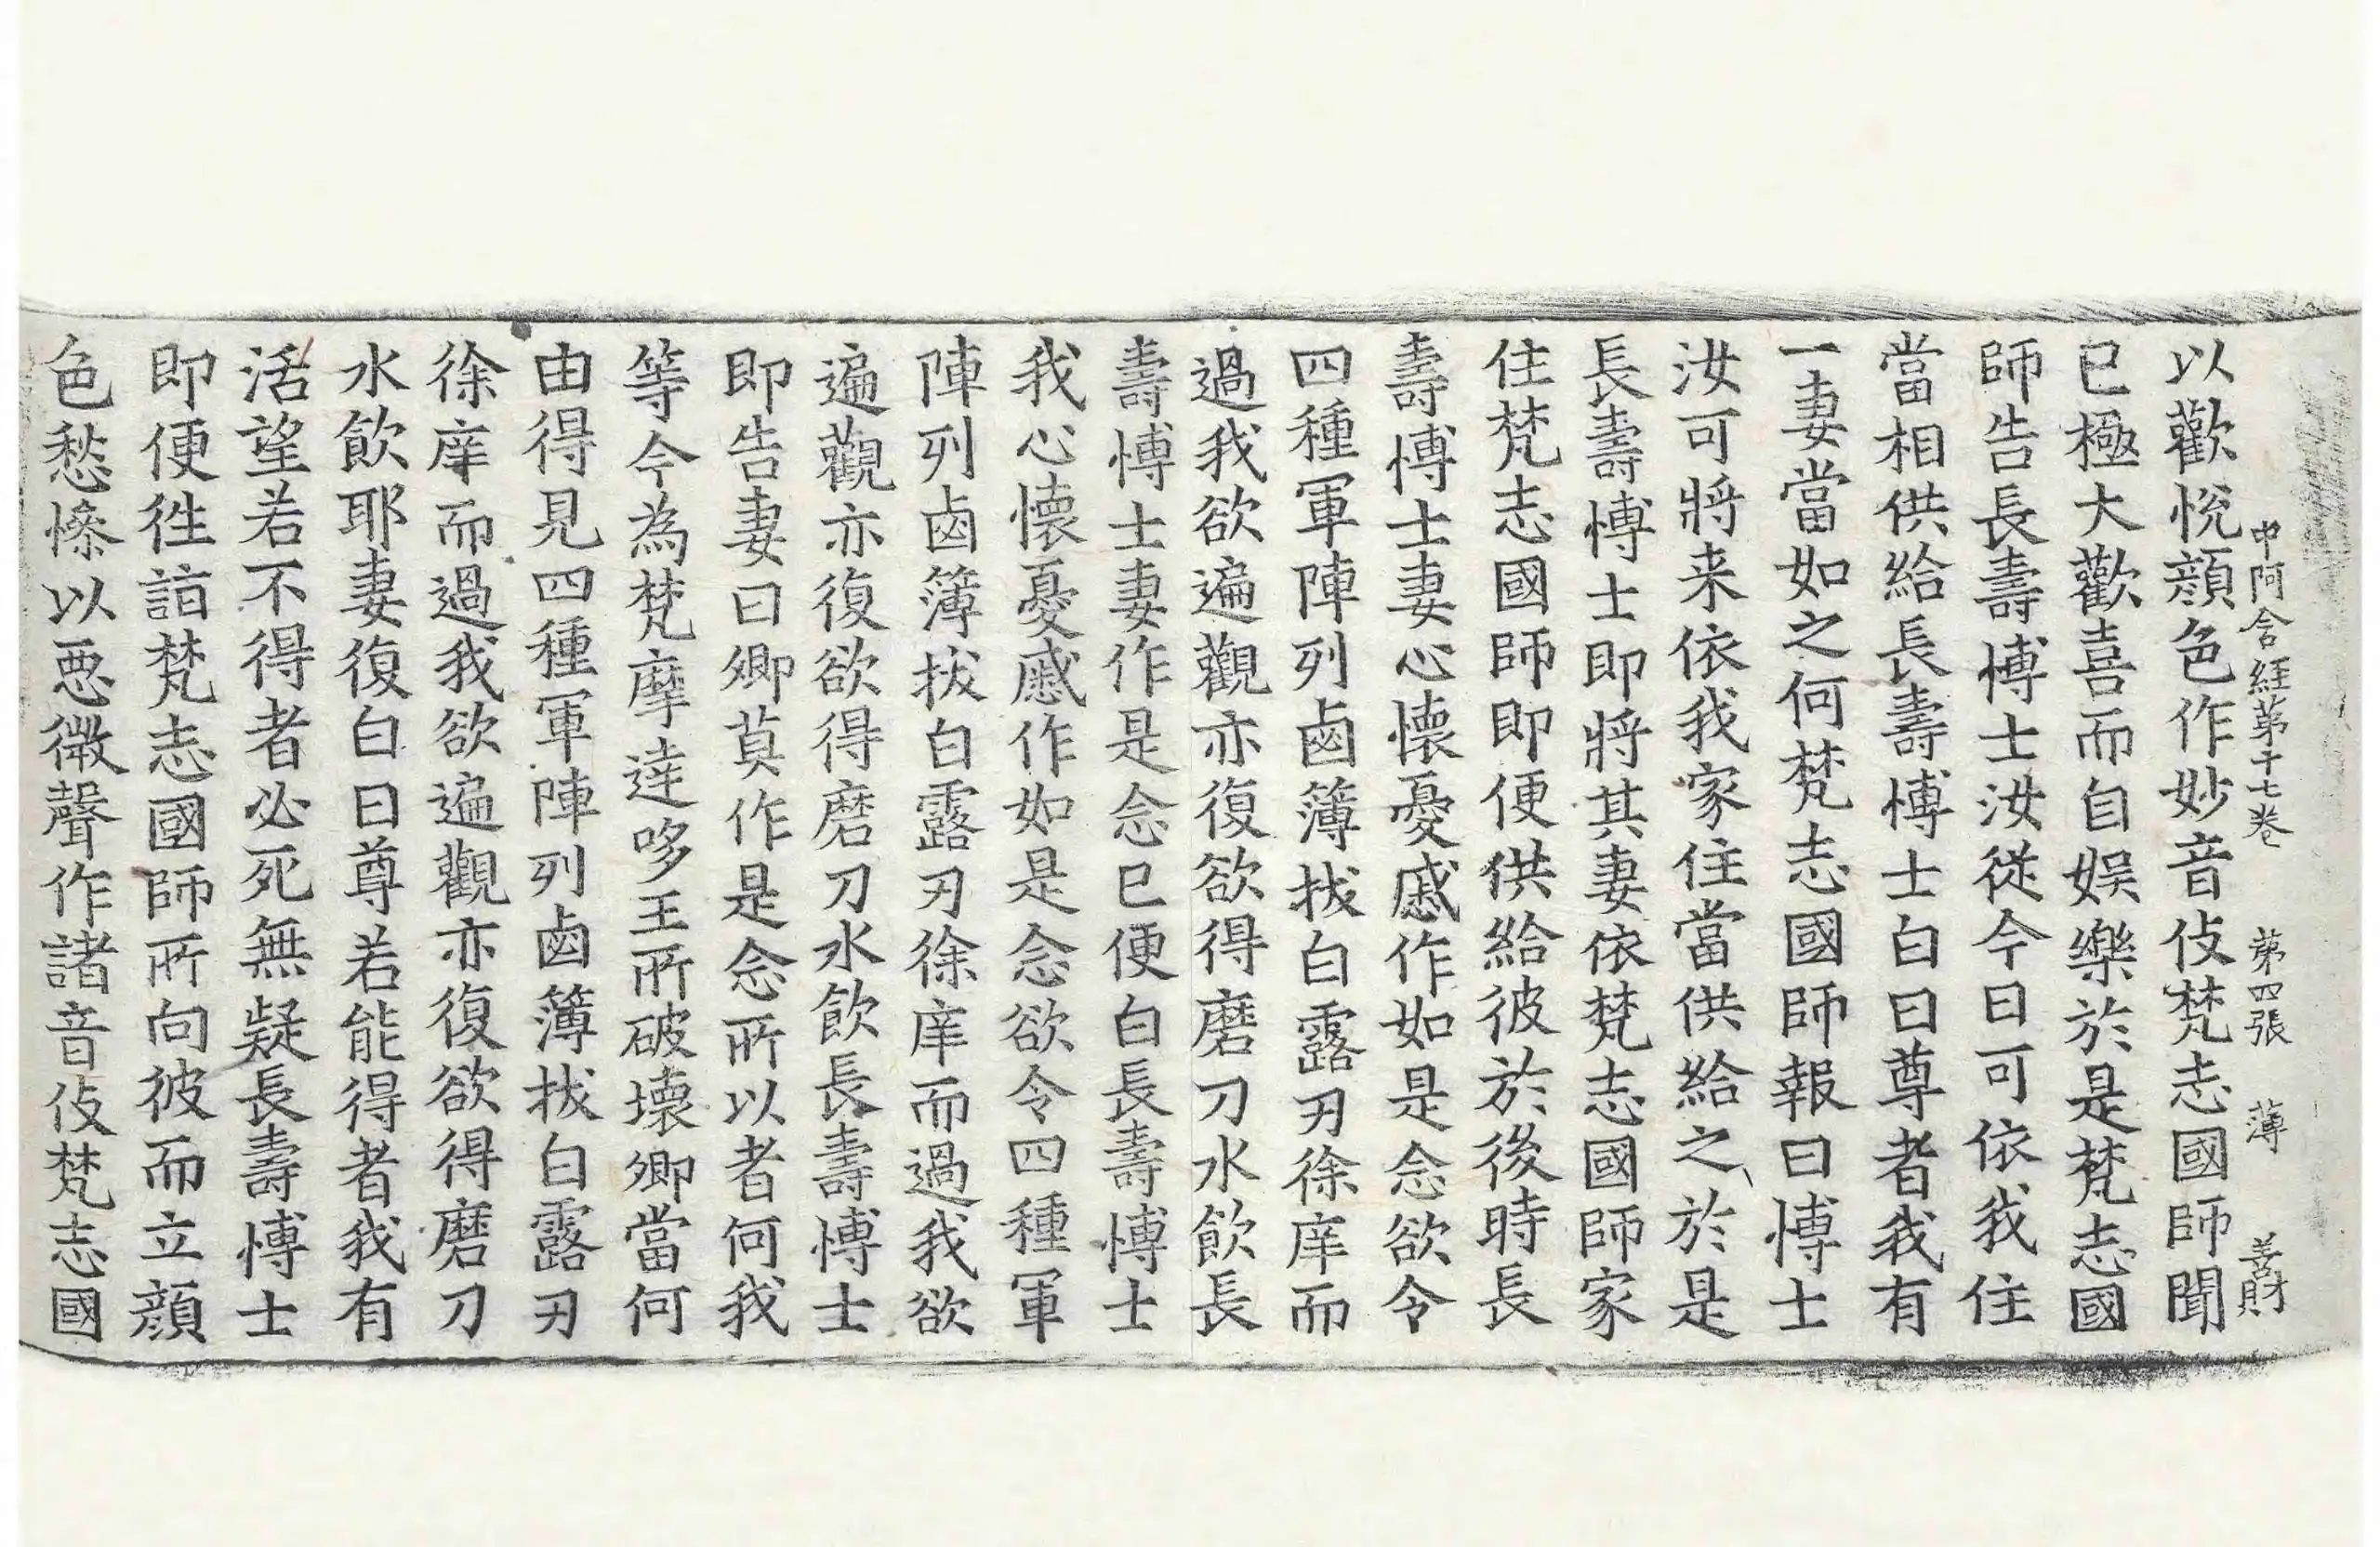 中阿含経苐十七巻 苐四張 薄 善財
以歡悅顔色作妙音伎梵志國師聞
已極大歡喜而自娛樂於是梵志國
師告長壽博士汝從今日可依我住
當相供給長壽博士白曰尊者我有
一妻當如之何梵志國師報曰博士
汝可將来依我家住當供給之於是
長壽博士即將其妻依梵志國師家
住梵志國師即便供給彼於後時長
壽博士妻心懷憂慼作如是念欲令
四種軍陣列鹵簿拔白露刃徐庠而
過我欲遍觀亦復欲得磨刀水飲長
壽博士妻作是念已便白長壽博士
我心懷憂慼作如是念欲令四種軍
陣列鹵簿拔白露刃徐庠而過我欲
遍觀亦復欲得磨刀水飲長壽博士
即告妻曰卿莫作是念所以者何我
等今為梵摩達哆王所破壞卿當何
由得見四種軍陣列鹵簿拔白露刃
徐庠而過我欲遍觀亦復欲得磨刀
水飲耶妻復白曰尊若能得者我有
活望若不得者必死無疑長壽博士
即便徃詣梵志國師所向彼而立顔
色愁慘以惡微聲作諸音伎梵志國